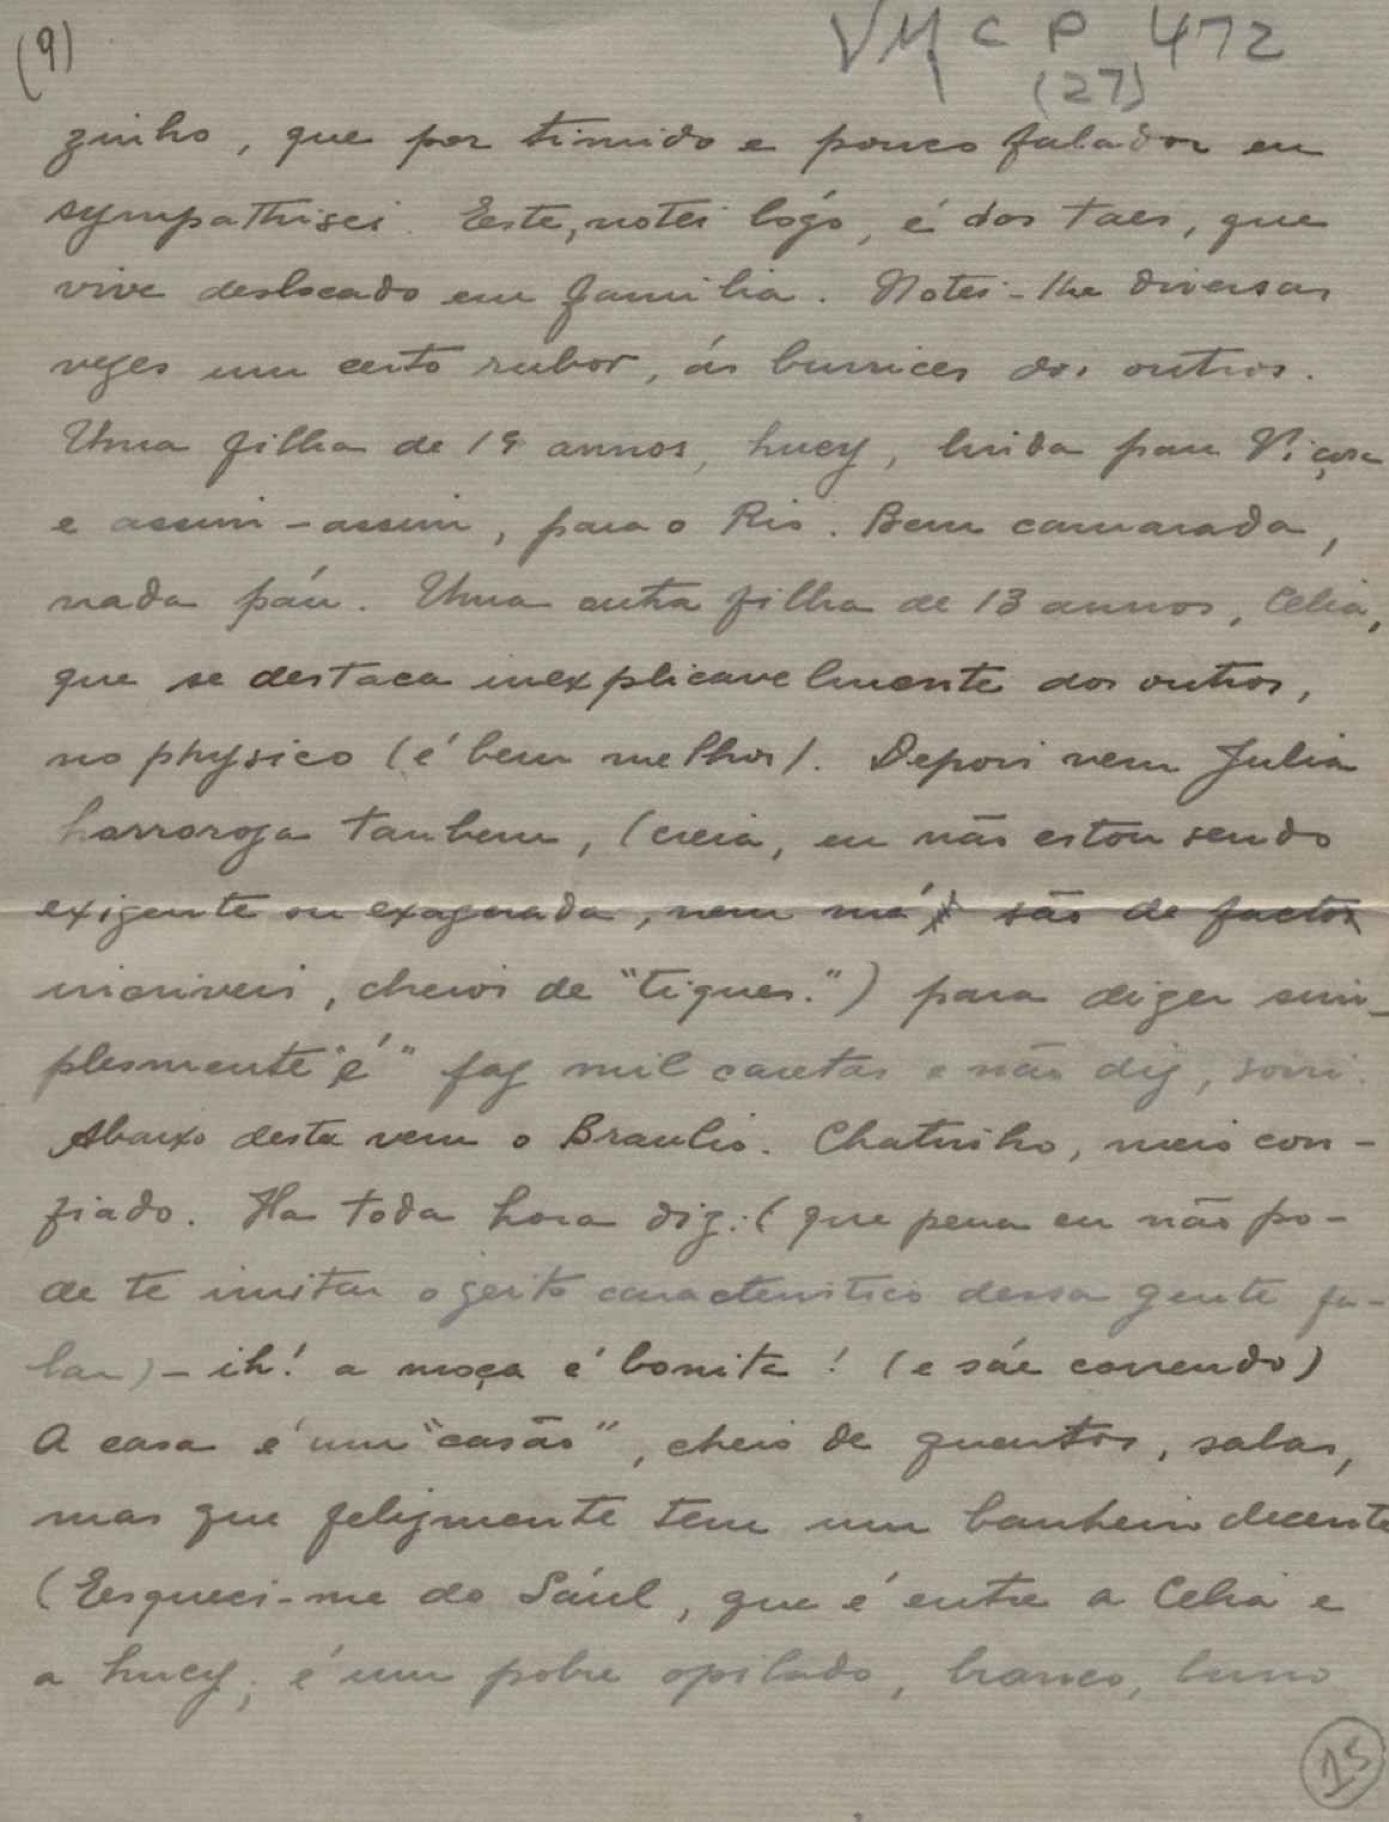 (9)
VM C P 472
(27)
zinho, que por timido e pouco falador eu
sympathisei. Eeste, notei lógo, é dos taes, que
vive deslocado em familia. Notei-lhe diversas
vezes um certo rubor, ás burrices dos outros.
Uma filha de 19 annos, Lucy, linda para Viçosa
e assim-assim, para o Rio. Bem camarada,
nada páu. Uma outra filha de 13 annos, Celia,
que se destaca inexplicavelmente dos outros,
no physico (é bem melhor). Depois vem Julia
horroroza tambem, (creia, eu não estou sendo
exigente ou exagerada, nem má, são de facto
incriveis, cheios de "tiques.") para dizer sim-
plesmente "é" faz mil caretas e não diz, sorri.
Abaixo desta vem o Braulio. Chatinho, meio con-
fiado. Ha toda hora diz: (que pena eu não po-
de te imitar o geito caracteristico dessa gente fa-
lar) - ih! a moça é bonita! (e sáe correndo)
A casa é um "casão", cheio de quartos, salas,
mas que felizmente tem um banheiro decente
(Eesqueci-me do Sául, que é entre a Celia e
a Lucy; é um pobre opilado, branco, burro
15